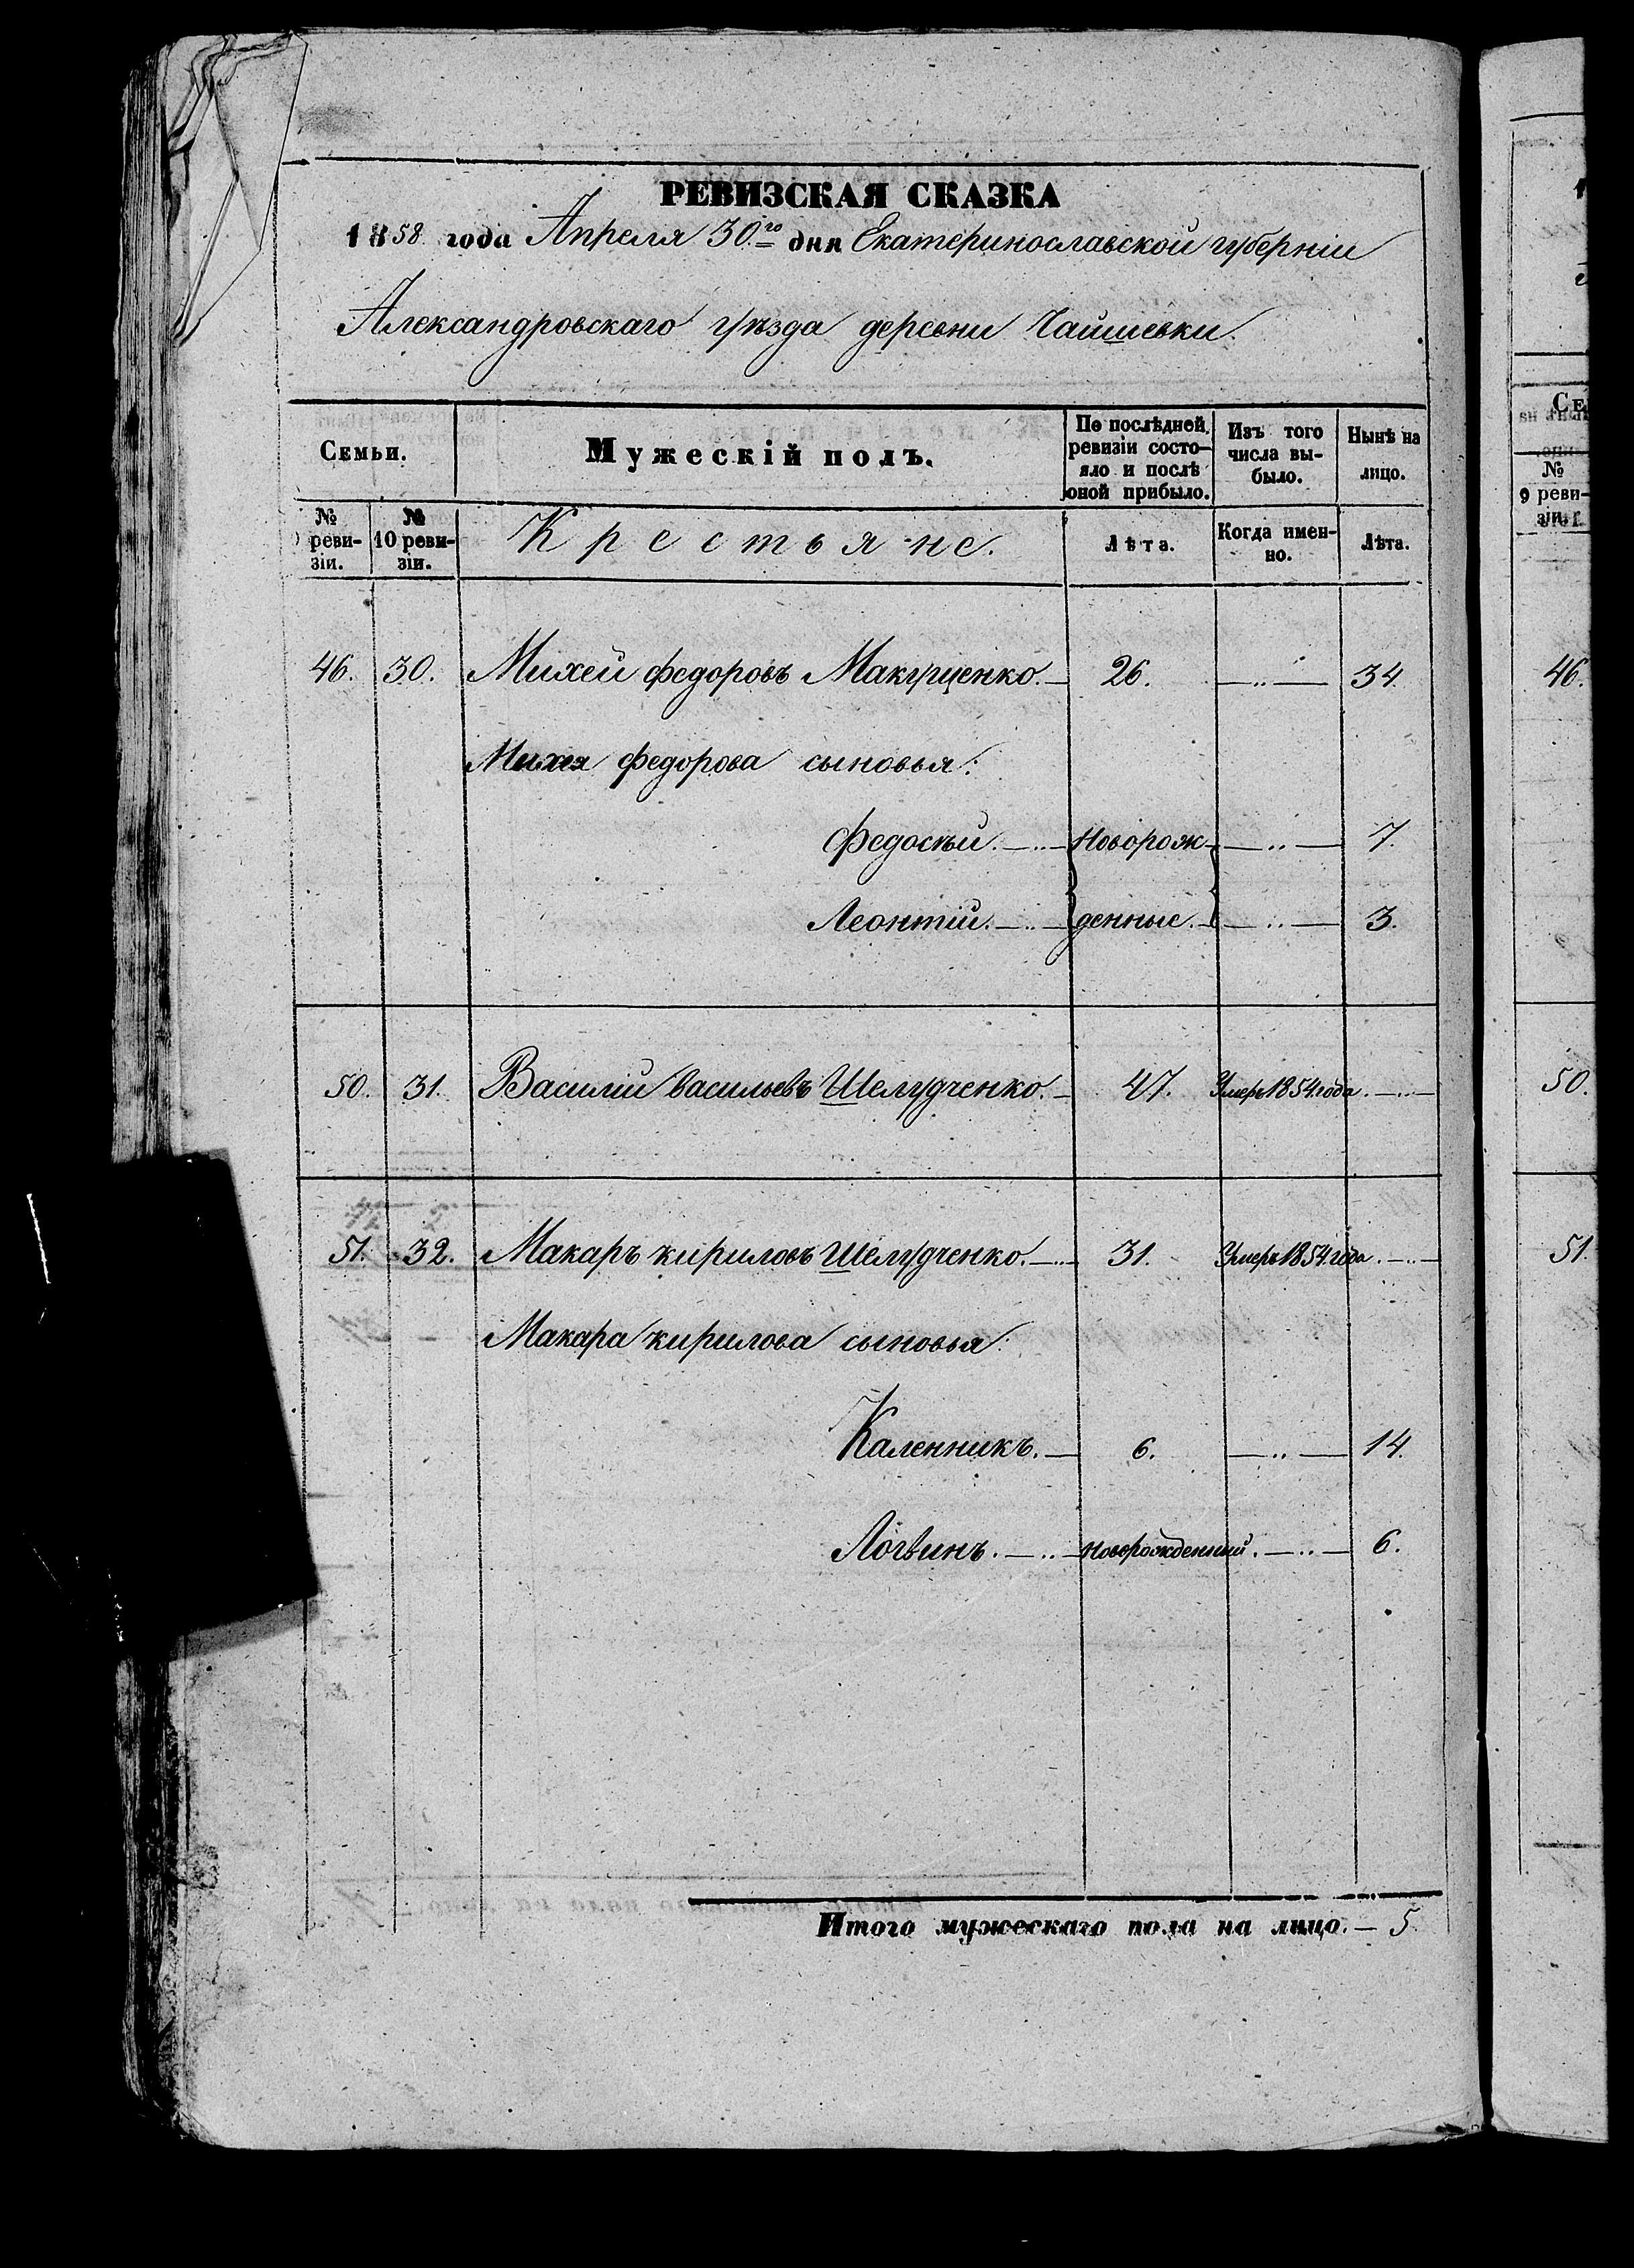 РЕВИЗСКАЯ СКАЗКА
1858 года Апреля 30.го дня Екатеринославской губерніи
Александровскаго уѣзда деревни
Семьи.
Мужескій полъ.
По послѣдней ревизіи состояло и послѣ оной прибыло.
Изъ того числа выбыло.
Нынѣ на лицо.
№ ревизіи.
№ 10 ревизіи.
Крестьяне.
Лѣта.
Когда именно.
Лѣта.
46. 30. Михей Федоровъ Макущенко. 26. — „ — 34.
Михея Федорова сыновья:
Федосѣй. — „ — Новорож- — „ — 7.
Леонтій. — „ — денные. — „ — 3.
50. 31. Василій Васильевъ Шелудченко. — 47. Умеръ 1854. года. — „ —
51. 32. Макаръ Кириловъ Шелудченко. — „ — 31. Умеръ 1854. года. — „ —
Макара Кирилова сыновья:
Каленникъ. — 6. — „ — 14.
Логвинъ. — „ — Новорожденный. — „ — 6.
Итого мужескаго пола на лицо. — 5.
Се
№
9 реви-
зіи.
46.
50.
51.